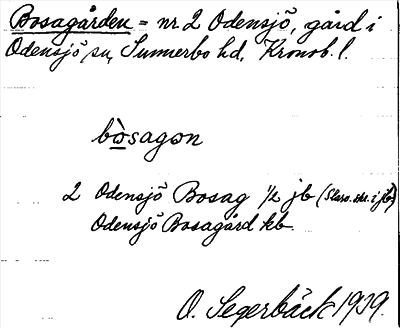 Bosagården = nr 2 Odensjö, gård i
Odensjö sn, Sunnerbo hd, Kronob. l.
bòsagon
2 Odensjö Bosag 1/2 jb (Skro. skr. i jb)
Odensjö Bosagård kb.
O. Segerbäck 1919.